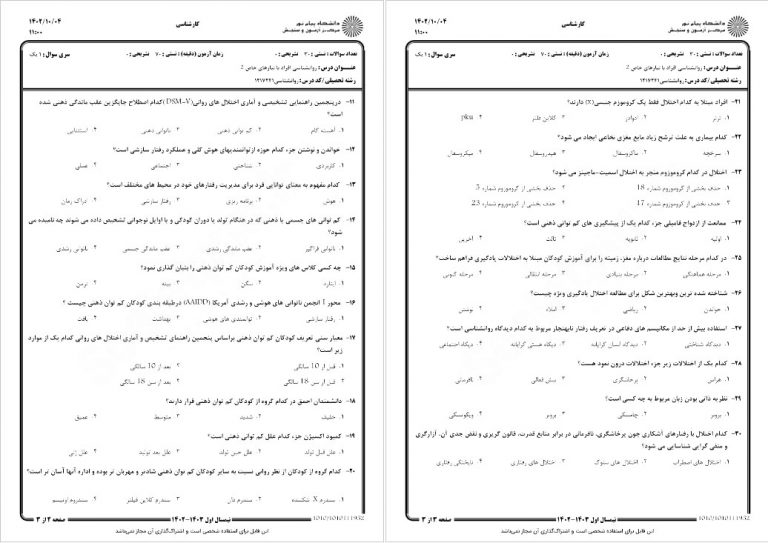 کارشناسی
۱۴۰۲/۱۰/۰۴
۱۱:۰۰
دانشگاه پیام نور
مرکز آزمون و سنجش
سری سوال: ۱ یک
زمان آزمون (دقیقه): تستی: ۷۰ تشریحی: ۰
تعداد سوالات: تستی: ۳۰ تشریحی: ۰
عنوان درس: روانشناسی افراد با نیازهای خاص 2
رشته تحصیلی/کد درس: روانشناسی۱۲۱۷۲۴۱
۱۱- درپنجمین راهنمایی تشخیصی و آماری اختلال های روانی(DSM-V) کدام اصطلاح جایگزین عقب ماندگی ذهنی شده
است؟
۱. آهسته گام ۲. کم توانی ذهنی ۳. ناتوانی ذهنی ۴. استثنایی
۱۲- خواندن و نوشتن جزء کدام حوزه ازتوانمندیهای هوش کلی و عملکرد رفتار سازشی است؟
۱. کاربردی ۲. شناختی ۳. اجتماعی ۴. عملی
۱۳- کدام مفهوم به معنای توانایی فرد برای مدیریت رفتارهای خود در محیط های مختلف است؟
۱. هوش ۲. برنامه ریزی ۳. رفتار سازشی ۴. ادراک زمان
۱۴- کم توانی های جسمی یا ذهنی که در هنگام تولد یا دوران کودکی و یا اوایل نوجوانی تشخیص داده می شوند چه نامیده می
شود؟
۱. ناتوانی فراگیر ۲. عقب ماندگی رشدی ۳. عقب ماندگی جسمی ۴. ناتوانی رشدی
۱۵- چه کسی کلاس های ویژه آموزش کودکان کم توان ذهنی را بنیان گذاری نمود؟
۱. ایتارد ۲. سگن ۳. بینه ۴. ترمن
۱۶- محور I انجمن ناتوانی های هوشی و رشدی آمریکا (AAIDD) درطبقه بندی کودکان کم توان ذهنی چیست ؟
۱. رفتار سازشی ۲. توانمندی های هوشی ۳. بهداشت ۴. بافت
۱۷- معیار سنی تعریف کودکان کم توان ذهنی براساس پنجمین راهنمای تشخیص و آماری اختلال های روانی کدام یک از موارد
زیر است؟
۱. قبل از 10 سالگی ۲. بعد از 10 سالگی
۳. قبل از سن 18 سالگی ۴. بعد از سن 18 سالگی
۱۸- دانشمندان احمق در کدام گروه از کودکان کم توان ذهنی قرار دارند؟
۱. خفیف ۲. شدید ۳. متوسط ۴. عمیق
۱۹- کمبود اکسیژن جزء کدام علل کم توانی ذهنی است؟
۱. علل قبل تولد ۲. علل حین تولد ۳. علل بعد تولید ۴. علل ژنی
۲۰- کدام گروه از کودکان از نظر روانی نسبت به سایر کودکان کم توان ذهنی شادتر و مهربان تر بوده و اداره آنها آسان تر است؟
۱. سندرم X شکننده ۲. سندرم دان ۳. سندرم کلاین فیلتر ۴. سندروم اوتیسم
صفحه ۲ از ۳
نیمسال اول ۱۴۰۳-۱۴۰۲
1010/1010111932
این فایل برای استفاده شخصی است و اشتراک‌گذاری آن مجاز نمی‌باشد
کارشناسی
۱۴۰۲/۱۰/۰۴
۱۱:۰۰
دانشگاه پیام نور
مرکز آزمون و سنجش
سری سوال: ۱ یک
زمان آزمون (دقیقه): تستی: ۷۰ تشریحی: ۰
تعداد سوالات: تستی: ۳۰ تشریحی: ۰
عنوان درس: روانشناسی افراد با نیازهای خاص 2
رشته تحصیلی/کد درس: روانشناسی۱۲۱۷۲۴۱
۲۱- افراد مبتلا به کدام اختلال فقط یک کروموزوم جنسی(x) دارند؟
۱. ترنر ۲. ادوادز ۳. کلاین فلتر ۴. pku
۲۲- کدام بیماری به علت ترشح زیاد مایع مغزی نخاعی ایجاد می شود؟
۱. سرخچه ۲. ماکروسفال ۳. هیدروسفال ۴. میکروسفال
۲۳- اختلال در کدام کروموزوم منجر به اختلال اسمیت-ماجینز می شود؟
۱. حذف بخشی از کروموزوم شماره 18 ۲. حذف بخشی از کروموزوم شماره 5
۳. حذف بخشی از کروموزوم شماره 17 ۴. حذف بخشی از کروموزوم شماره 23
۲۴- ممانعت از ازدواج فامیلی جزء کدام یک از پیشگیری های کم توانی ذهنی است؟
۱. اولیه ۲. ثانویه ۳. ثالث ۴. آخرین
۲۵- در کدام مرحله نتایج مطالعات درباره مغز، زمینه را برای آموزش کودکان مبتلا به اختلالات یادگیری فراهم ساخت؟
۱. مرحله هماهنگی ۲. مرحله بنیادی ۳. مرحله انتقالی ۴. مرحله کنونی
۲۶- شناخته شده ترین وبهترین شکل برای مطالعه اختلال یادگیری ویژه چیست؟
۱. خواندن ۲. ریاضی ۳. املاء ۴. نوشتن
۲۷- استفاده بیش از حد از مکانیسم های دفاعی در تعریف رفتار نابهنجار مربوط به کدام دیدگاه روانشناسی است؟
۱. دیدگاه شناختی ۲. دیدگاه انسان گرایانه ۳. دیگاه هستی گرایانه ۴. دیگاه اجتماعی
۲۸- کدام یک از اختلالات زیر جزء اختلالات درون نمود هست؟
۱. هراس ۲. پرخاشگری ۳. بیش فعالی ۴. نافرمانی
۲۹- نظریه ذاتی بودن زبان مربوط به چه کسی است؟
۱. برونر ۲. چامسکی ۳. برونر ۴. ویگوتسکی
۳۰- کدام اختلال با رفتارهای آشکاری چون پرخاشگری، نافرمانی در برابر منابع قدرت، قانون گریزی و نقض جدی آن، آزارگری
و منفی گرایی شناسایی می شود؟
۱. اختلال های اضطراب ۲. اختلال های سلوک ۳. اختلال های رفتاری ۴. نایختگی رفتاری
صفحه ۳ از ۳
نیمسال اول ۱۴۰۳-۱۴۰۲
1010/1010111932
این فایل برای استفاده شخصی است و اشتراک‌گذاری آن مجاز نمی‌باشد